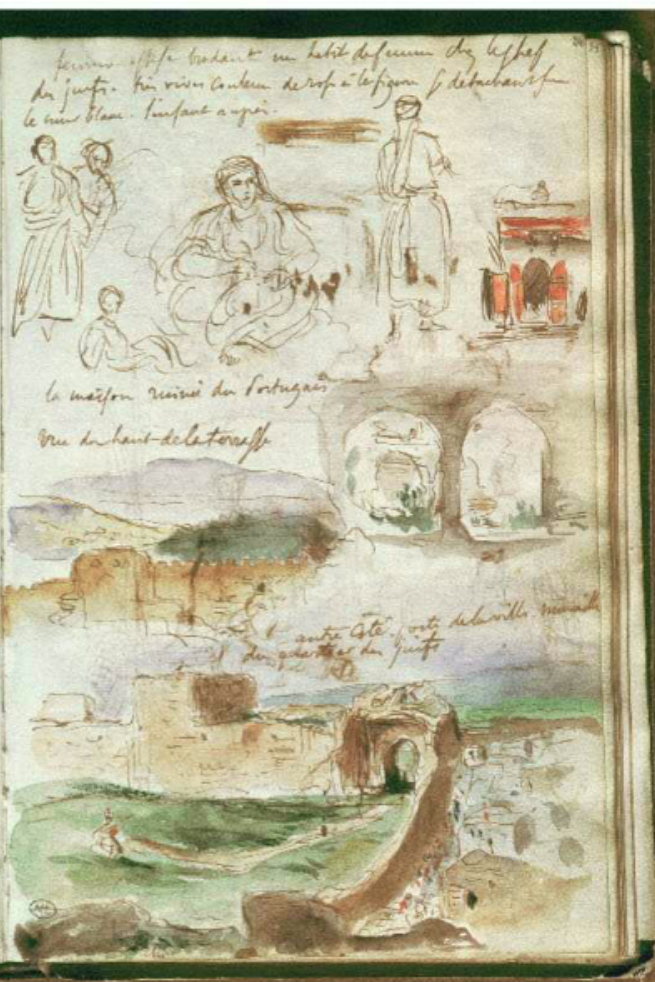 femme assise brodant un habit de femme chez le chef
des juifs. très vives couleurs de rose à la figure se détachant sur
le mur blanc. l'enfant auprès.
la maison ruinée du Portugais
vue du haut de la terrasse
autre côté. porte de la ville muraille
du quartier des juifs